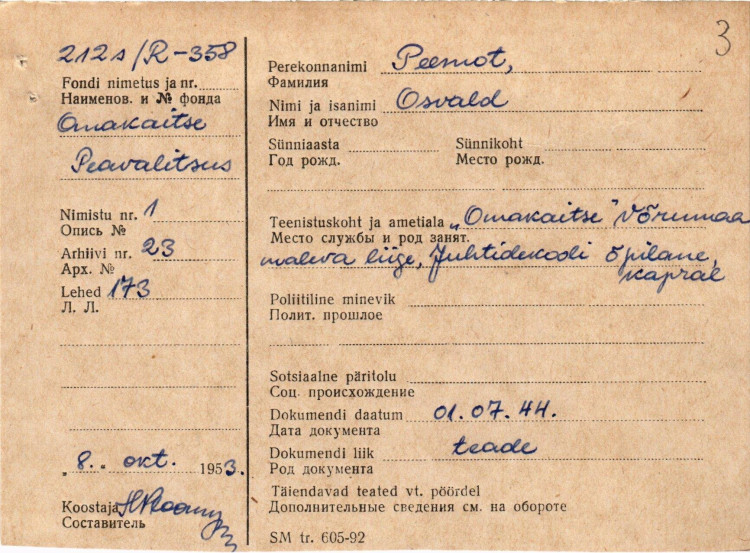 3
212s/R-358
Fondi nimetus ja nr.
Наименов. и № фонда
Omakaitse
Peavalitsus
Nimistu nr. 1
Опись №
Arhiivi nr. 23
Арх. №
Lehed 173
Л. Л.
"8." okt. 1953.
Koostaja
Составитель
Perekonnanimi Peemot,
Фамилия
Nimi ja isanimi Osvald
Имя и отчество
Sünniaasta Sünnikoht
Год рожд. Место рожд.
Teenistuskoht ja ametiala „Omakaitse" Võrumaa
Место службы и род занят.
maleva liige, Juhtidekooli õpilane,
kapral
Poliitiline minevik
Полит. прошлое
Sotsiaalne päritolu
Соц. происхождение
Dokumendi daatum 01.07.44.
Дата документа
Dokumendi liik teade
Род документа
Täiendavad teated vt. pöördel
Дополнительные сведения см. на обороте
SM tr. 605-92